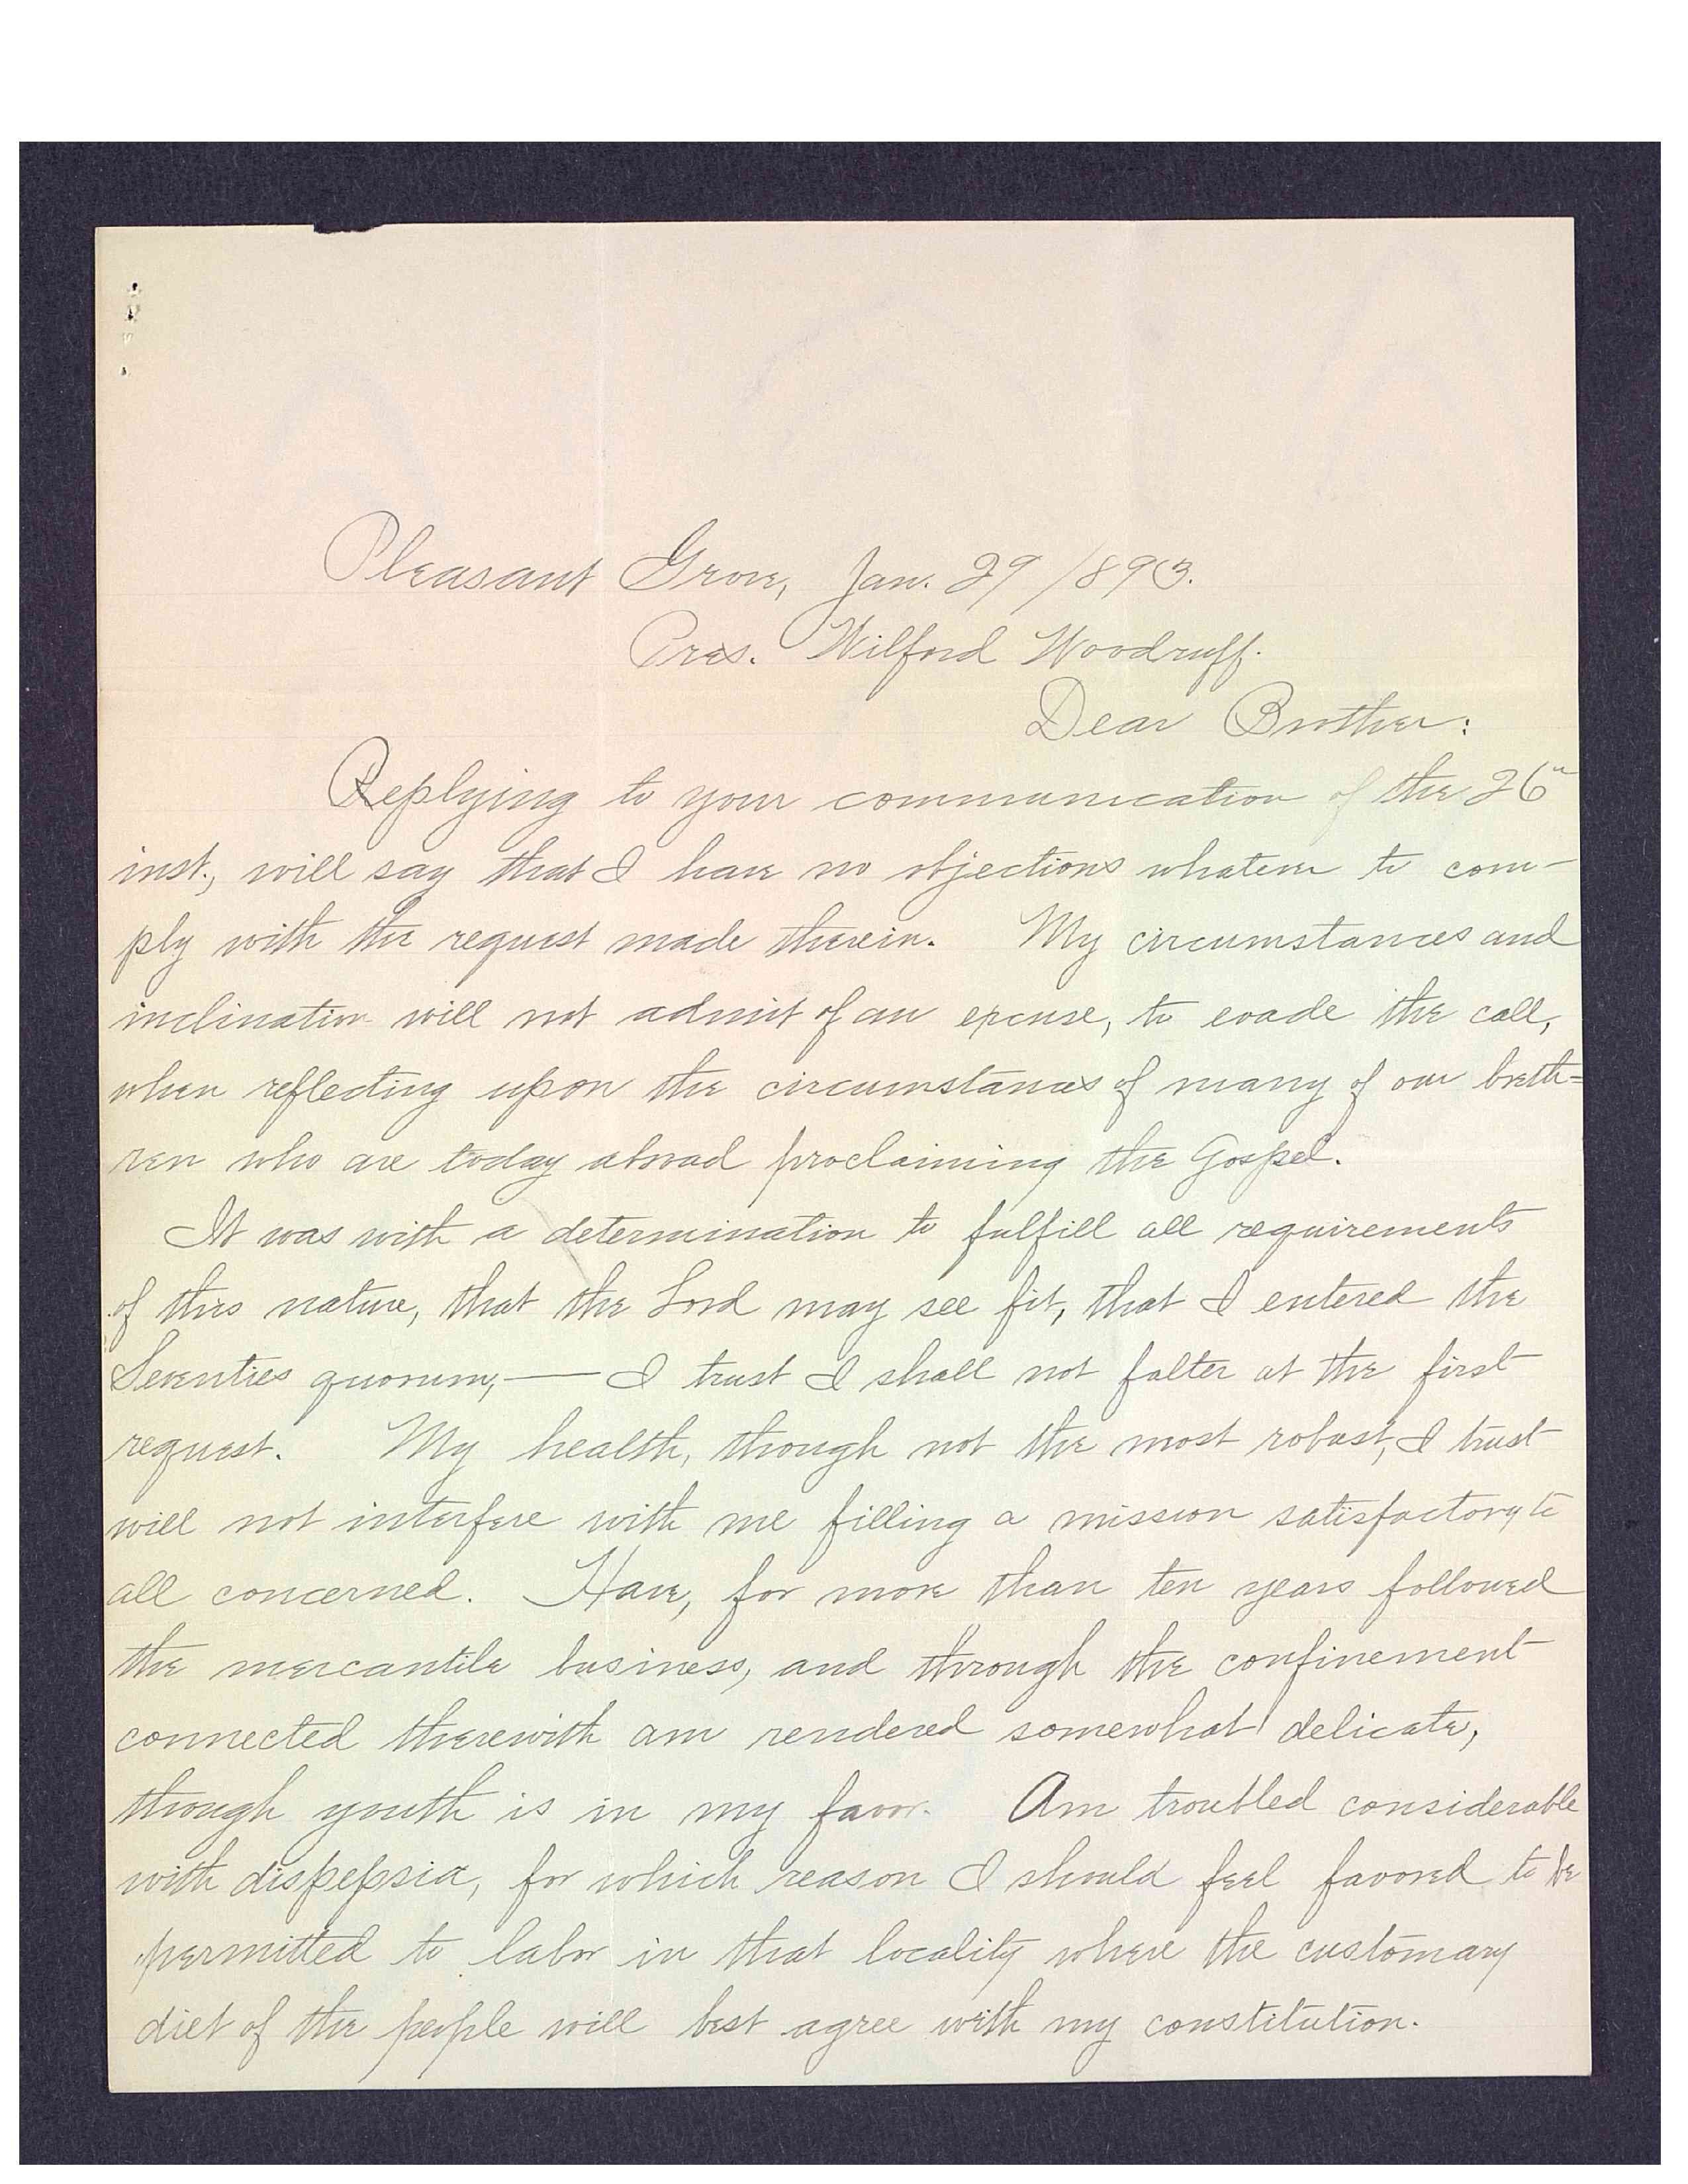 Pleasant Grove, Jan. 29 1893.
Pres. Wilford Woodruff.
Dear Brother:
Replying to your communication of the 26"
inst., will say that I have no objections whatever to com-
ply with the request made therein. My circumstances and
inclination will not admit of an excuse, to evade the call,
when reflecting upon the circumstances of many of our breth=
ren who are today abroad proclaiming the Gospel.
It was with a determination to fulfill all requirements
of this nature, that the Lord may see fit, that I entered the
Seventies quorum, — I trust I shall not falter at the first
request. My health, though not the most robust, I trust
will not interfere with me filling a mission satisfactory to
all concerned. Have, for more than ten years followed
the mercantile business, and through the confinement
connected therewith am rendered somewhat delicate,
though youth is in my favor. Am troubled considerable
with dispepsia, for which reason I should feel favored to be
permitted to labor in that locality where the customary
diet of the people will best agree with my constitution.